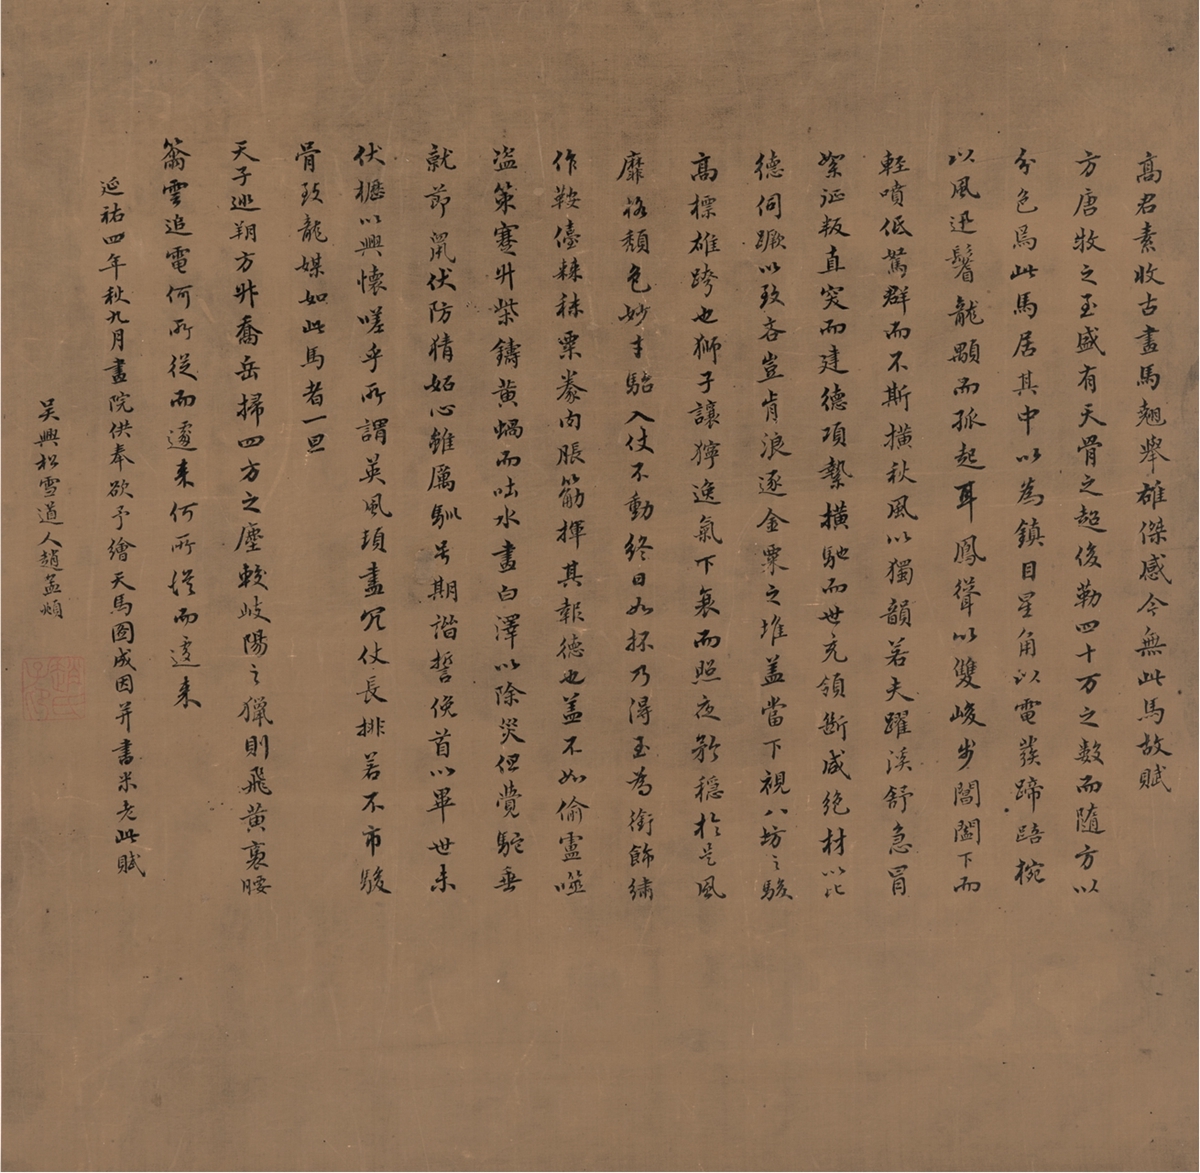 高君素收古畫馬翹舉雄傑感今無此馬故賦
方唐牧之至盛有天骨之超俊勒四十万之数而隨方以
分色焉此馬居其中以為鎮目星角以電發蹄踣椀
以風迅鬐龍顒而孤起耳鳳聳以雙峻步閶闔下而
輕噴低駑群而不斯橫秋風以獨韻若夫躍溪舒急冒
絮征叛直突而建德項縶橫馳而世充領斷咸絶材以比
德伺蹶以致吝豈肯浪逐金粟之堆盖當下視八坊之駿
高標雄跨也獅子讓獰逸氣下衰而照夜矜穩於是風
靡格頹色妙才駘入仗不動終日如抔乃得玉為銜飾繡
作鞍儓棘秣粟豢肉脹筋揮其報德也盖不如偷盧噬
盜策蹇升柴鑄黄蝸而吐水畫白澤以除災但覺駝垂
就節鼠伏防猜妬心雖厲馴号期諧誓俛首以畢世未
伏櫪以興懷嗟乎所謂英風頊盡冗仗長排若不市駿
骨致龍媒如此馬者一旦
天子巡朔方升喬岳掃四方之塵較岐陽之獵則飛黄褭腰
籋雲追電何所從而遽来何所從而遽来
延祐四年秋九月畫院供奉欲予繪天馬圖成因并書米老此賦
吴興松雪道人趙孟頫